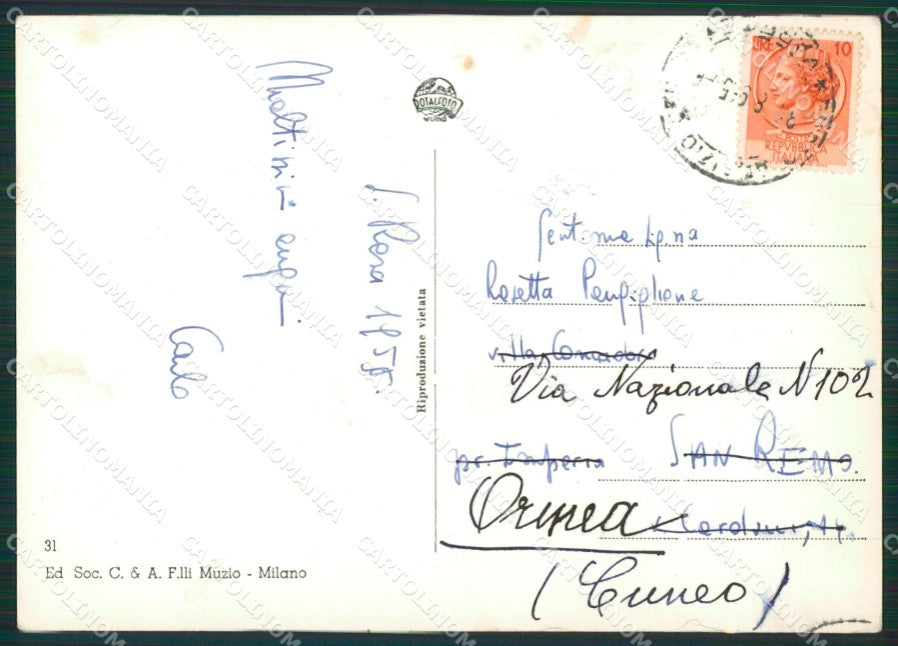 ROTALFOTO
MILANO
LIRE 10
POSTE
REPVBBLICA
ITALIANA
S. Rosa 1958.
Moltissimi auguri
Carlo
Riproduzione vietata
Gent.ma Sig.na
Rosetta Panfiglione
villa
Via Nazionale N 102
pr. Imperia SAN REMO.
Ormea
(Cuneo)
31
Ed Soc. C. & A. F.lli Muzio - Milano
CARTOLINOMANIA